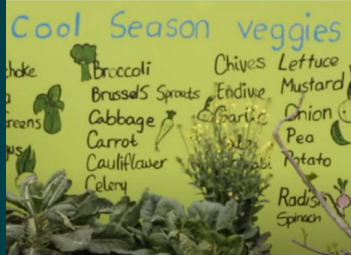 Cool Season veggies
Broccoli
Brussels Sprouts
Cabbage
Carrot
Cauliflower
Celery
Chives
Endive
Garlic
Lettuce
Mustard
Onion
Pea
Potato
Radish
Spinach